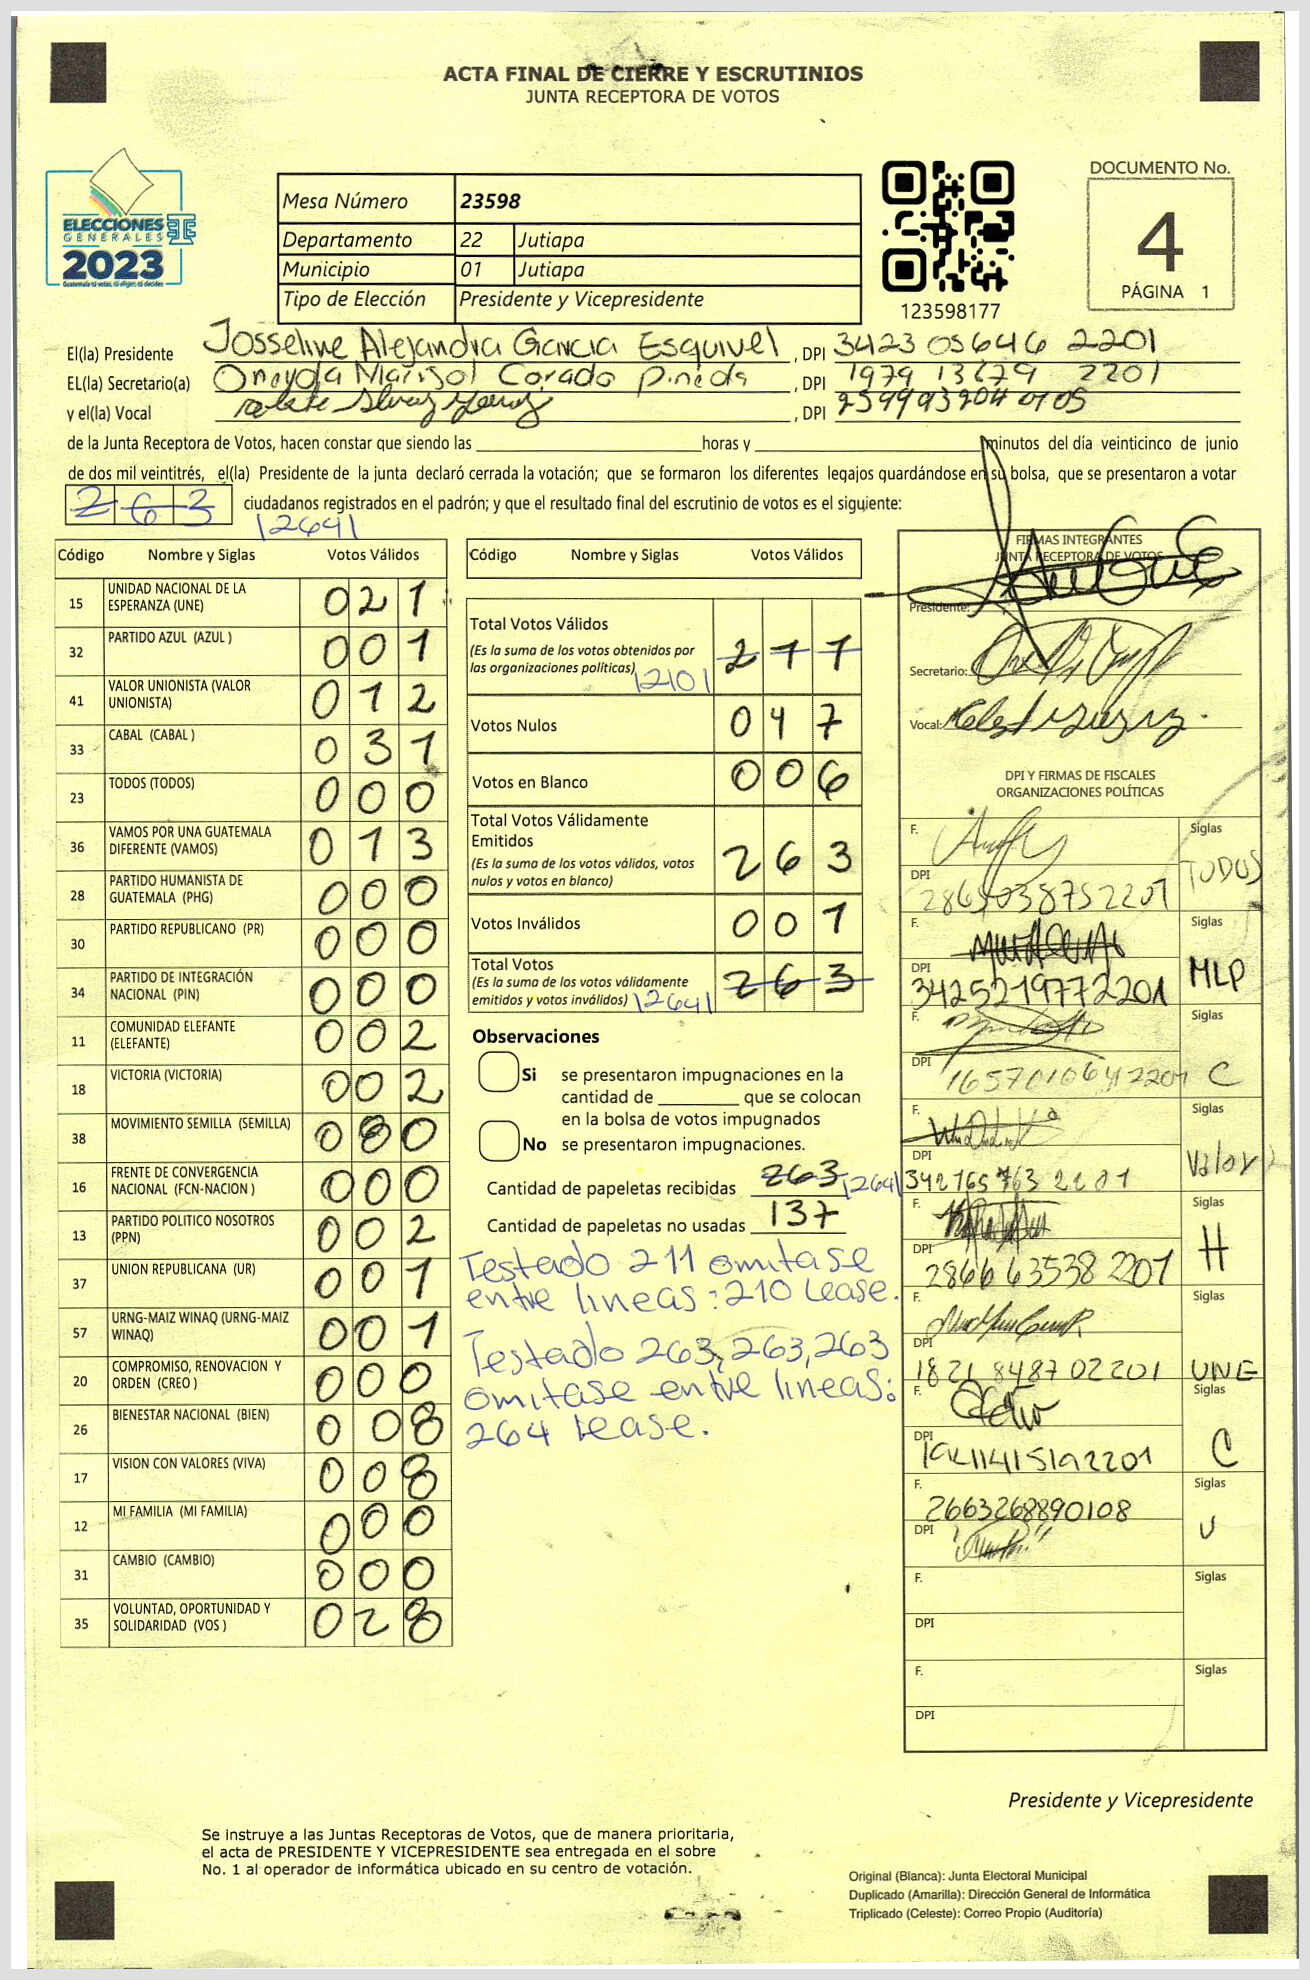 ACTA FINAL DE CIERRE Y ESCRUTINIOS
JUNTA RECEPTORA DE VOTOS
ELECCIONES
GENERALES
2023
Guatemala tú votas, tú eliges, tú decides
Mesa Número 23598
Departamento 22 Jutiapa
Municipio 01 Jutiapa
Tipo de Elección Presidente y Vicepresidente
123598177
DOCUMENTO No.
4
PÁGINA 1
El(la) Presidente Josseline Alejandra Garcia Esquivel, DPI 3423 05646 2201
EL(la) Secretario(a) Oneyda Marisol Corado Pineda, DPI 1979 13679 2201
y el(la) Vocal , DPI
de la Junta Receptora de Votos, hacen constar que siendo las horas y minutos del día veinticinco de junio
de dos mil veintitrés, el(la) Presidente de la junta declaró cerrada la votación; que se formaron los diferentes legajos guardándose en su bolsa, que se presentaron a votar
263 ciudadanos registrados en el padrón; y que el resultado final del escrutinio de votos es el siguiente:
|264|
Código Nombre y Siglas Votos Válidos
15 UNIDAD NACIONAL DE LA ESPERANZA (UNE) 021
32 PARTIDO AZUL (AZUL ) 001
41 VALOR UNIONISTA (VALOR UNIONISTA) 012
33 CABAL (CABAL ) 031
23 TODOS (TODOS) 000
36 VAMOS POR UNA GUATEMALA DIFERENTE (VAMOS) 013
28 PARTIDO HUMANISTA DE GUATEMALA (PHG) 000
30 PARTIDO REPUBLICANO (PR) 000
34 PARTIDO DE INTEGRACIÓN NACIONAL (PIN) 000
11 COMUNIDAD ELEFANTE (ELEFANTE) 002
18 VICTORIA (VICTORIA) 002
38 MOVIMIENTO SEMILLA (SEMILLA) 080
16 FRENTE DE CONVERGENCIA NACIONAL (FCN-NACION ) 000
13 PARTIDO POLITICO NOSOTROS (PPN) 002
37 UNION REPUBLICANA (UR) 001
57 URNG-MAIZ WINAQ (URNG-MAIZ WINAQ) 001
20 COMPROMISO, RENOVACION Y ORDEN (CREO ) 000
26 BIENESTAR NACIONAL (BIEN) 008
17 VISION CON VALORES (VIVA) 008
12 MI FAMILIA (MI FAMILIA) 000
31 CAMBIO (CAMBIO) 000
35 VOLUNTAD, OPORTUNIDAD Y SOLIDARIDAD (VOS ) 028
Código Nombre y Siglas Votos Válidos
Total Votos Válidos 211
(Es la suma de los votos obtenidos por
las organizaciones políticas) |210|
Votos Nulos 047
Votos en Blanco 006
Total Votos Válidamente
Emitidos 263
(Es la suma de los votos válidos, votos
nulos y votos en blanco)
Votos Inválidos 001
Total Votos
(Es la suma de los votos válidamente
emitidos y votos inválidos) |264| 263
Observaciones
Si se presentaron impugnaciones en la
cantidad de que se colocan
en la bolsa de votos impugnados
No se presentaron impugnaciones.
Cantidad de papeletas recibidas 263 |264|
Cantidad de papeletas no usadas 137
Testado 211 omitase
entre lineas: 210 Lease.
Testado 263, 263, 263
omitase entre lineas:
264 Lease.
FIRMAS INTEGRANTES
JUNTA RECEPTORA DE VOTOS
Presidente:
Secretario:
Vocal:
DPI Y FIRMAS DE FISCALES
ORGANIZACIONES POLÍTICAS
F. Siglas
DPI TODOS
F. Siglas
DPI MLP
3425219772201
F. Siglas
DPI C
F. Siglas
DPI Valor
F. Siglas
DPI H
2866 63538 2201
F. Siglas
DPI
1821 8487 02201 UNE
F. Siglas
DPI C
F. Siglas
2663268890108
DPI U
F. Siglas
DPI
F. Siglas
DPI
Presidente y Vicepresidente
Se instruye a las Juntas Receptoras de Votos, que de manera prioritaria,
el acta de PRESIDENTE Y VICEPRESIDENTE sea entregada en el sobre
No. 1 al operador de informática ubicado en su centro de votación.
Original (Blanca): Junta Electoral Municipal
Duplicado (Amarilla): Dirección General de Informática
Triplicado (Celeste): Correo Propio (Auditoría)